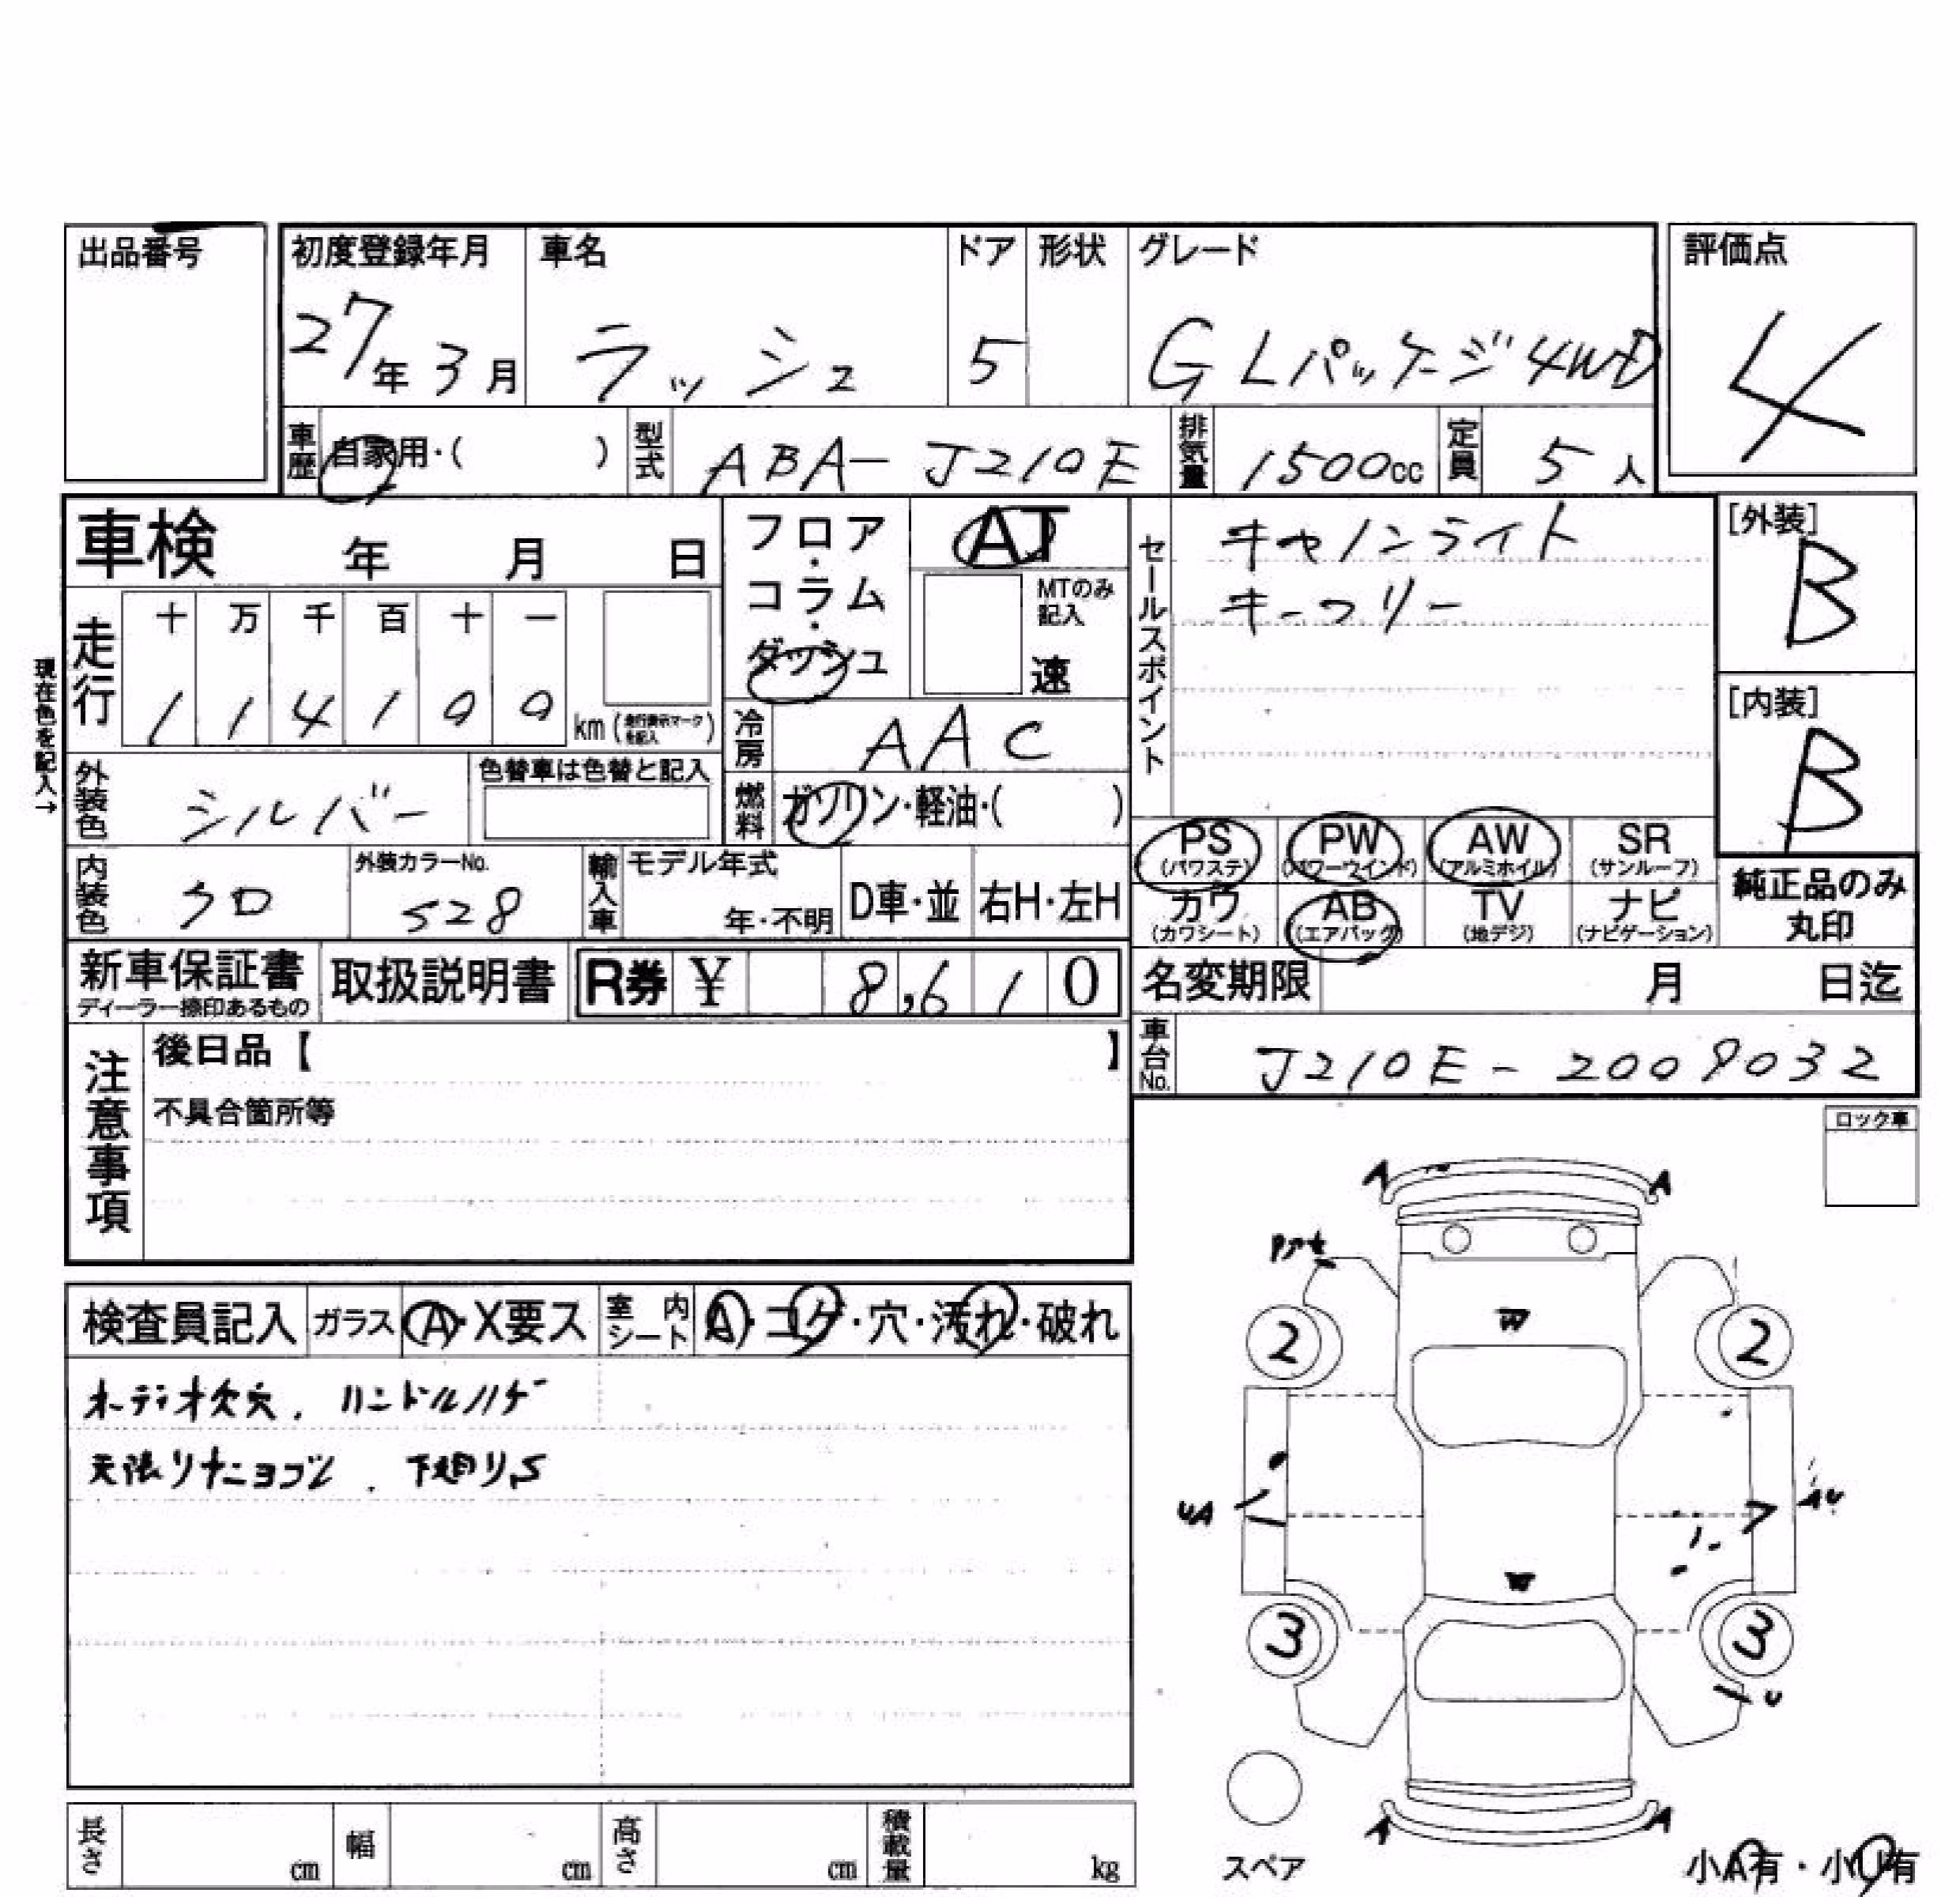 出品番号
初度登録年月 車名 ドア 形状 グレード 評価点
27年3月 ラッシュ 5 G Lパッケージ4WD 4
車歴 自家用・( ) 型式 ABA-J210E 排気量 1500cc 定員 5人
車検 年 月 日
フロア・コラム・ダッシュ
AT
MTのみ記入
速
セールスポイント
キセノンライト
キーフリー
[外装]
B
[内装]
B
現在色を記入→
走行 十 万 千 百 十 一
1 1 4 1 0 0 km (走行表示マークを記入)
冷房 AAC
外装色 シルバー 色替車は色替と記入
燃料 ガソリン・軽油・( )
PS (パワステ) PW (パワーウインド) AW (アルミホイル) SR (サンルーフ)
カワ (カワシート) AB (エアバッグ) TV (地デジ) ナビ (ナビゲーション)
純正品のみ丸印
内装色 クロ 外装カラーNo. S28 輸入車 モデル年式 年・不明 D車・並 右H・左H
新車保証書 ディーラー捺印あるもの 取扱説明書 R券 ¥ 8,610
名変期限 月 日迄
車台No. J210E-2009032
注意事項
後日品【 】
不具合箇所等
ロック車
検査員記入 ガラス A・X要ス 室内シート A・コゲ・穴・汚れ・破れ
オーディオ欠穴. ハンドルハゲ
天張リナニヨゴレ. 下廻りS
A A
W
2 2
UA
AU
W
3 3
U
A A
スペア
小A有・小U有
長さ cm 幅 cm 高さ cm 積載量 kg